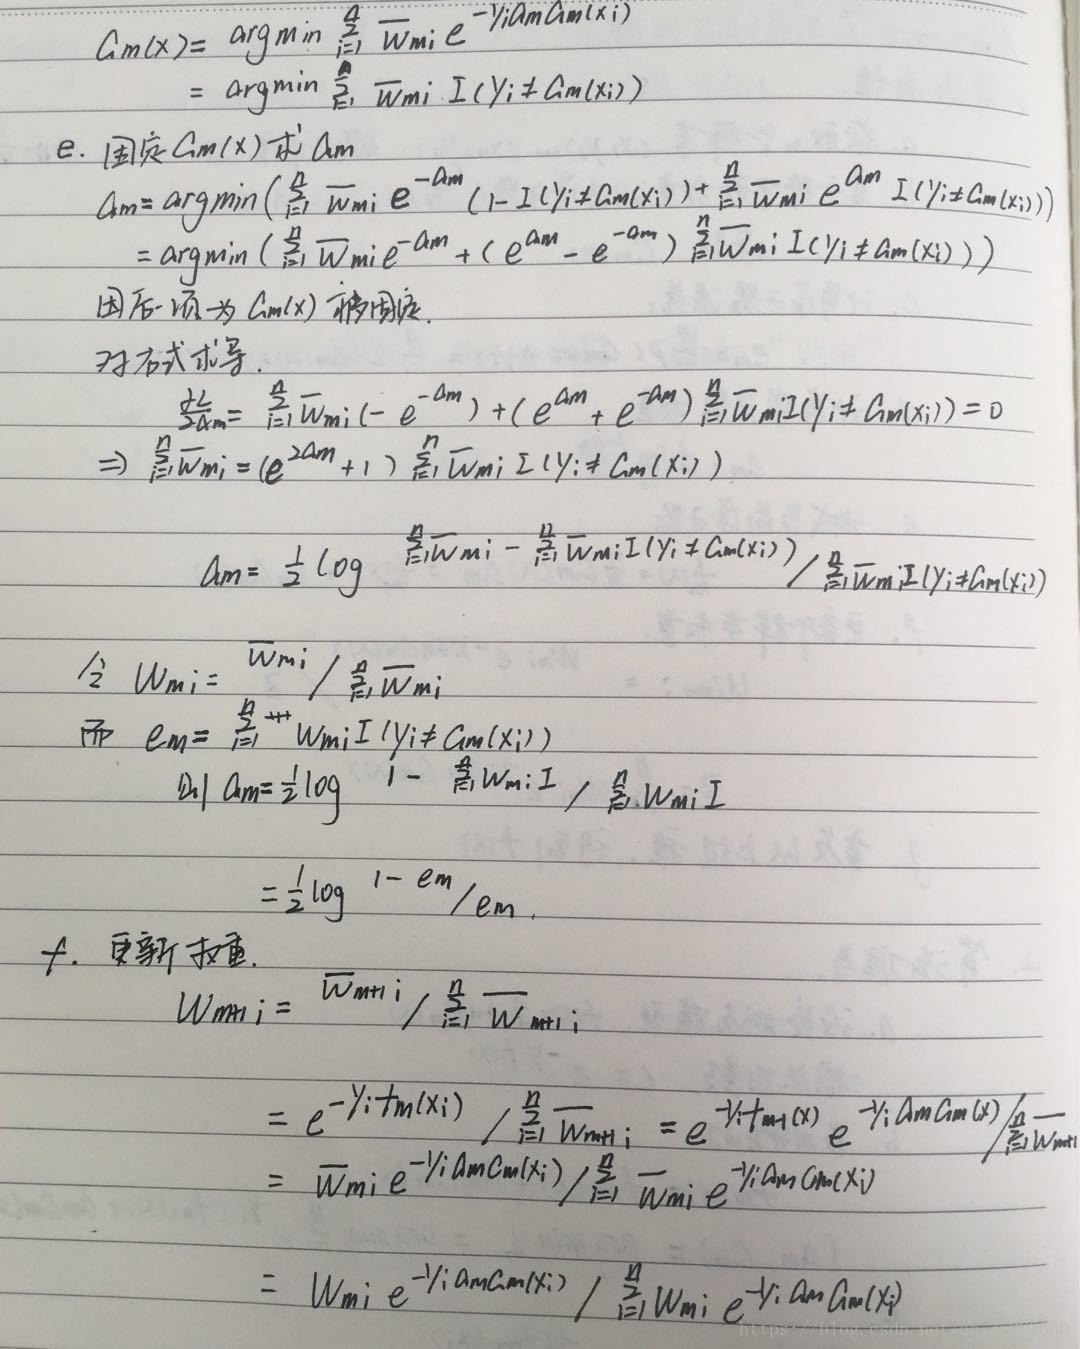 Gm(x) = argmin Σ_{i=1}^{n} w̄mi e^{-yi am Gm(xi)}
= argmin Σ_{i=1}^{n} w̄mi I(yi≠Gm(xi))
e. 固定Gm(x)求am
am = argmin(Σ_{i=1}^{n} w̄mi e^{-am} (1-I(yi≠Gm(xi)) + Σ_{i=1}^{n} w̄mi e^{am} I(yi≠Gm(xi)))
= argmin(Σ_{i=1}^{n} w̄mi e^{-am} + (e^{am} - e^{-am}) Σ_{i=1}^{n} w̄mi I(yi≠Gm(xi)))
因后一项为Gm(x)被固定.
对右式求导.
∂L/∂am = Σ_{i=1}^{n} w̄mi (-e^{-am}) + (e^{am} + e^{-am}) Σ_{i=1}^{n} w̄mi I(yi≠Gm(xi)) = 0
⇒ Σ_{i=1}^{n} w̄mi = (e^{2am} + 1) Σ_{i=1}^{n} w̄mi I(yi≠Gm(xi))
am = 1/2 log Σ_{i=1}^{n} w̄mi - Σ_{i=1}^{n} w̄mi I(yi≠Gm(xi)) / Σ_{i=1}^{n} w̄mi I(yi≠Gm(xi))
令 wmi = w̄mi / Σ_{i=1}^{n} w̄mi
而 em = Σ_{i=1}^{n} wmi I(yi≠Gm(xi))
则 am = 1/2 log 1 - Σ_{i=1}^{n} wmi I / Σ_{i=1}^{n} wmi I
= 1/2 log 1-em / em.
f. 更新权重.
wm+1 i = w̄m+1 i / Σ_{i=1}^{n} w̄m+1 i
= e^{-yi fm(xi)} / Σ_{i=1}^{n} w̄m+1 i = e^{-yi fm-1(x)} e^{-yi am Gm(x)} / Σ_{i=1}^{n} w̄m+1
= w̄mi e^{-yi am Gm(xi)} / Σ_{i=1}^{n} w̄mi e^{-yi am Gm(xi)}
= wmi e^{-yi am Gm(xi)} / Σ_{i=1}^{n} wmi e^{-yi am Gm(xi)}